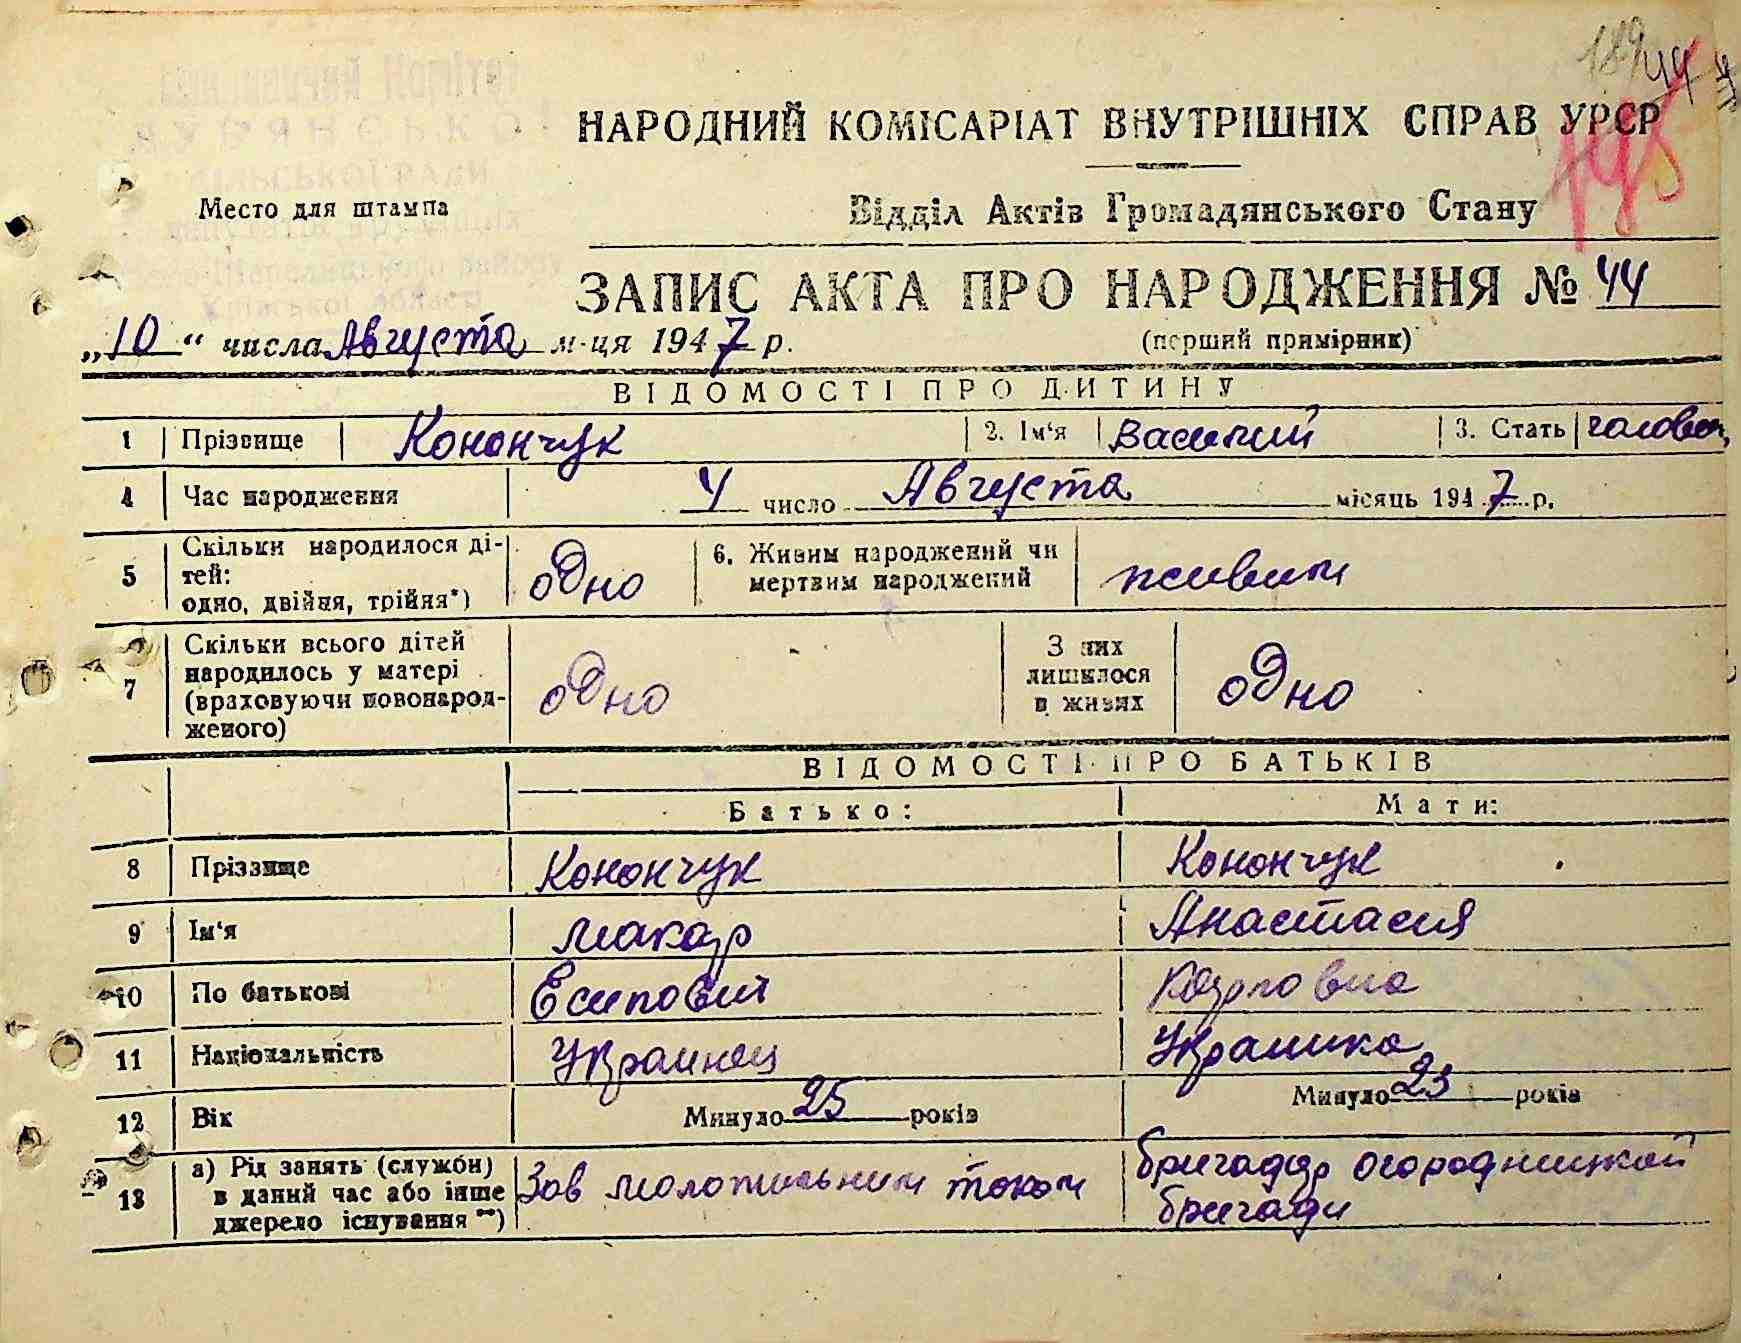 189 44
НАРОДНИЙ КОМІСАРІАТ ВНУТРІШНІХ СПРАВ УРСР
Место для штампа
Відділ Актів Громадянського Стану
ЗАПИС АКТА ПРО НАРОДЖЕННЯ № 44
„10“ числа Августа м-ця 1947 р.
(перший примірник)
ВІДОМОСТІ ПРО ДИТИНУ
1 Прізвище Конончук 2. Ім‘я Василий 3. Стать
4 Час народження 4 число Августа місяць 1947 р.
5 Скільки народилося ді-
тей:
одно, двійня, трійня*) одно 6. Живим народжений чи
мертвим народжений живим
7 Скільки всього дітей
народилось у матері
(враховуючи новонарод-
женого) одно З них
лишилося
в живих одно
ВІДОМОСТІ ПРО БАТЬКІВ
Батько: Мати:
8 Прізвище Конончук Конончук
9 Ім‘я Макар Анастасия
10 По батькові Есипович Карповна
11 Національність Украинец Украинка
12 Вік Минуло 25 років Минуло 23 років
13 а) Рід занять (служби)
в даний час або інше
джерело існування **) Зав молотильним током бригадир огородницкой
бригади